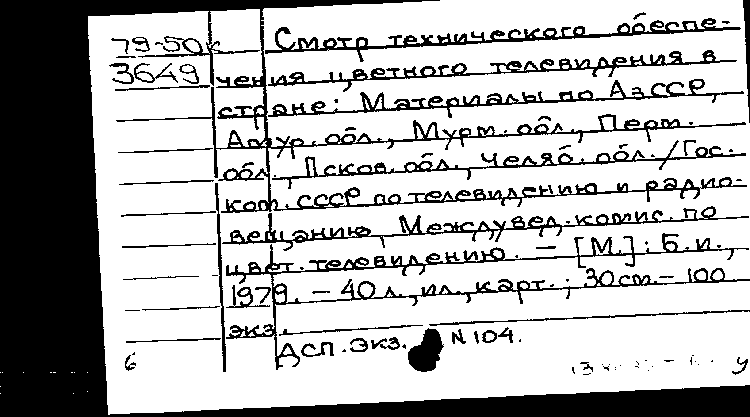 79-50к Смотр технического обеспе-
3649 чения цветного телевидения в
стране: Материалы по АзССР,
Амур. обл., Мурм. обл., Перм.
обл., Псков. обл., Челяб. обл. / Гос.
ком. СССР по телевидению и радио-
вещанию, Междувед. комис. по
цвет. телевидению. — [М.]: Б.и.,
1979. — 40 л., ил., карт.; 30 см. — 100
экз.
ДСП. Экз. N 104.
6